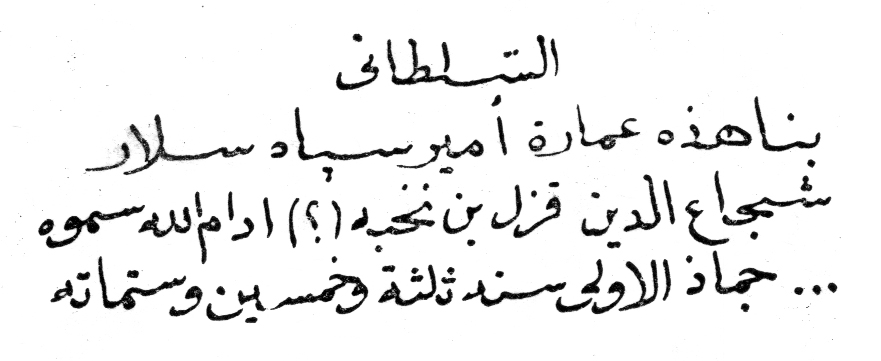 السلطانى
بنا هذه عمارة أمير سپاه سلار
شجاع الدين قزل بن نخجبه (؟) ادام الله سموه
... جماذ الاولى سنه ثلثة وخمسين وستمائه